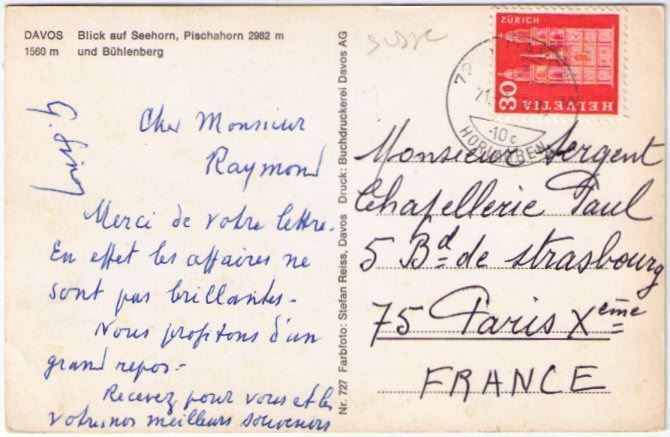 DAVOS Blick auf Seehorn, Pischahorn 2982 m
1560 m und Bühlenberg
susse
Cher Monsieur
Raymond
Merci de votre lettre.
En effet les affaires ne
sont pas brillantes -
Nous profitons d'un
grand repos -
Recevez pour vous et les
votres, nos meilleurs souvenirs
Nr. 727 Farbfoto: Stefan Reiss, Davos Druck: Buchdruckerei Davos AG
ZÜRICH
30
HELVETIA
21.
-10 c
HORLAUBEN
Monsieur Sergent
Chapellerie Paul
5 Bd de strasbourg
75 Paris Xème
FRANCE